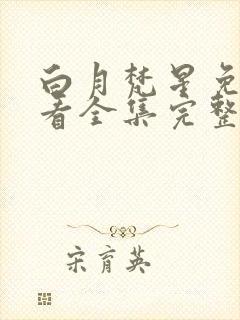 白月梵星免
看全集完整
宋育英